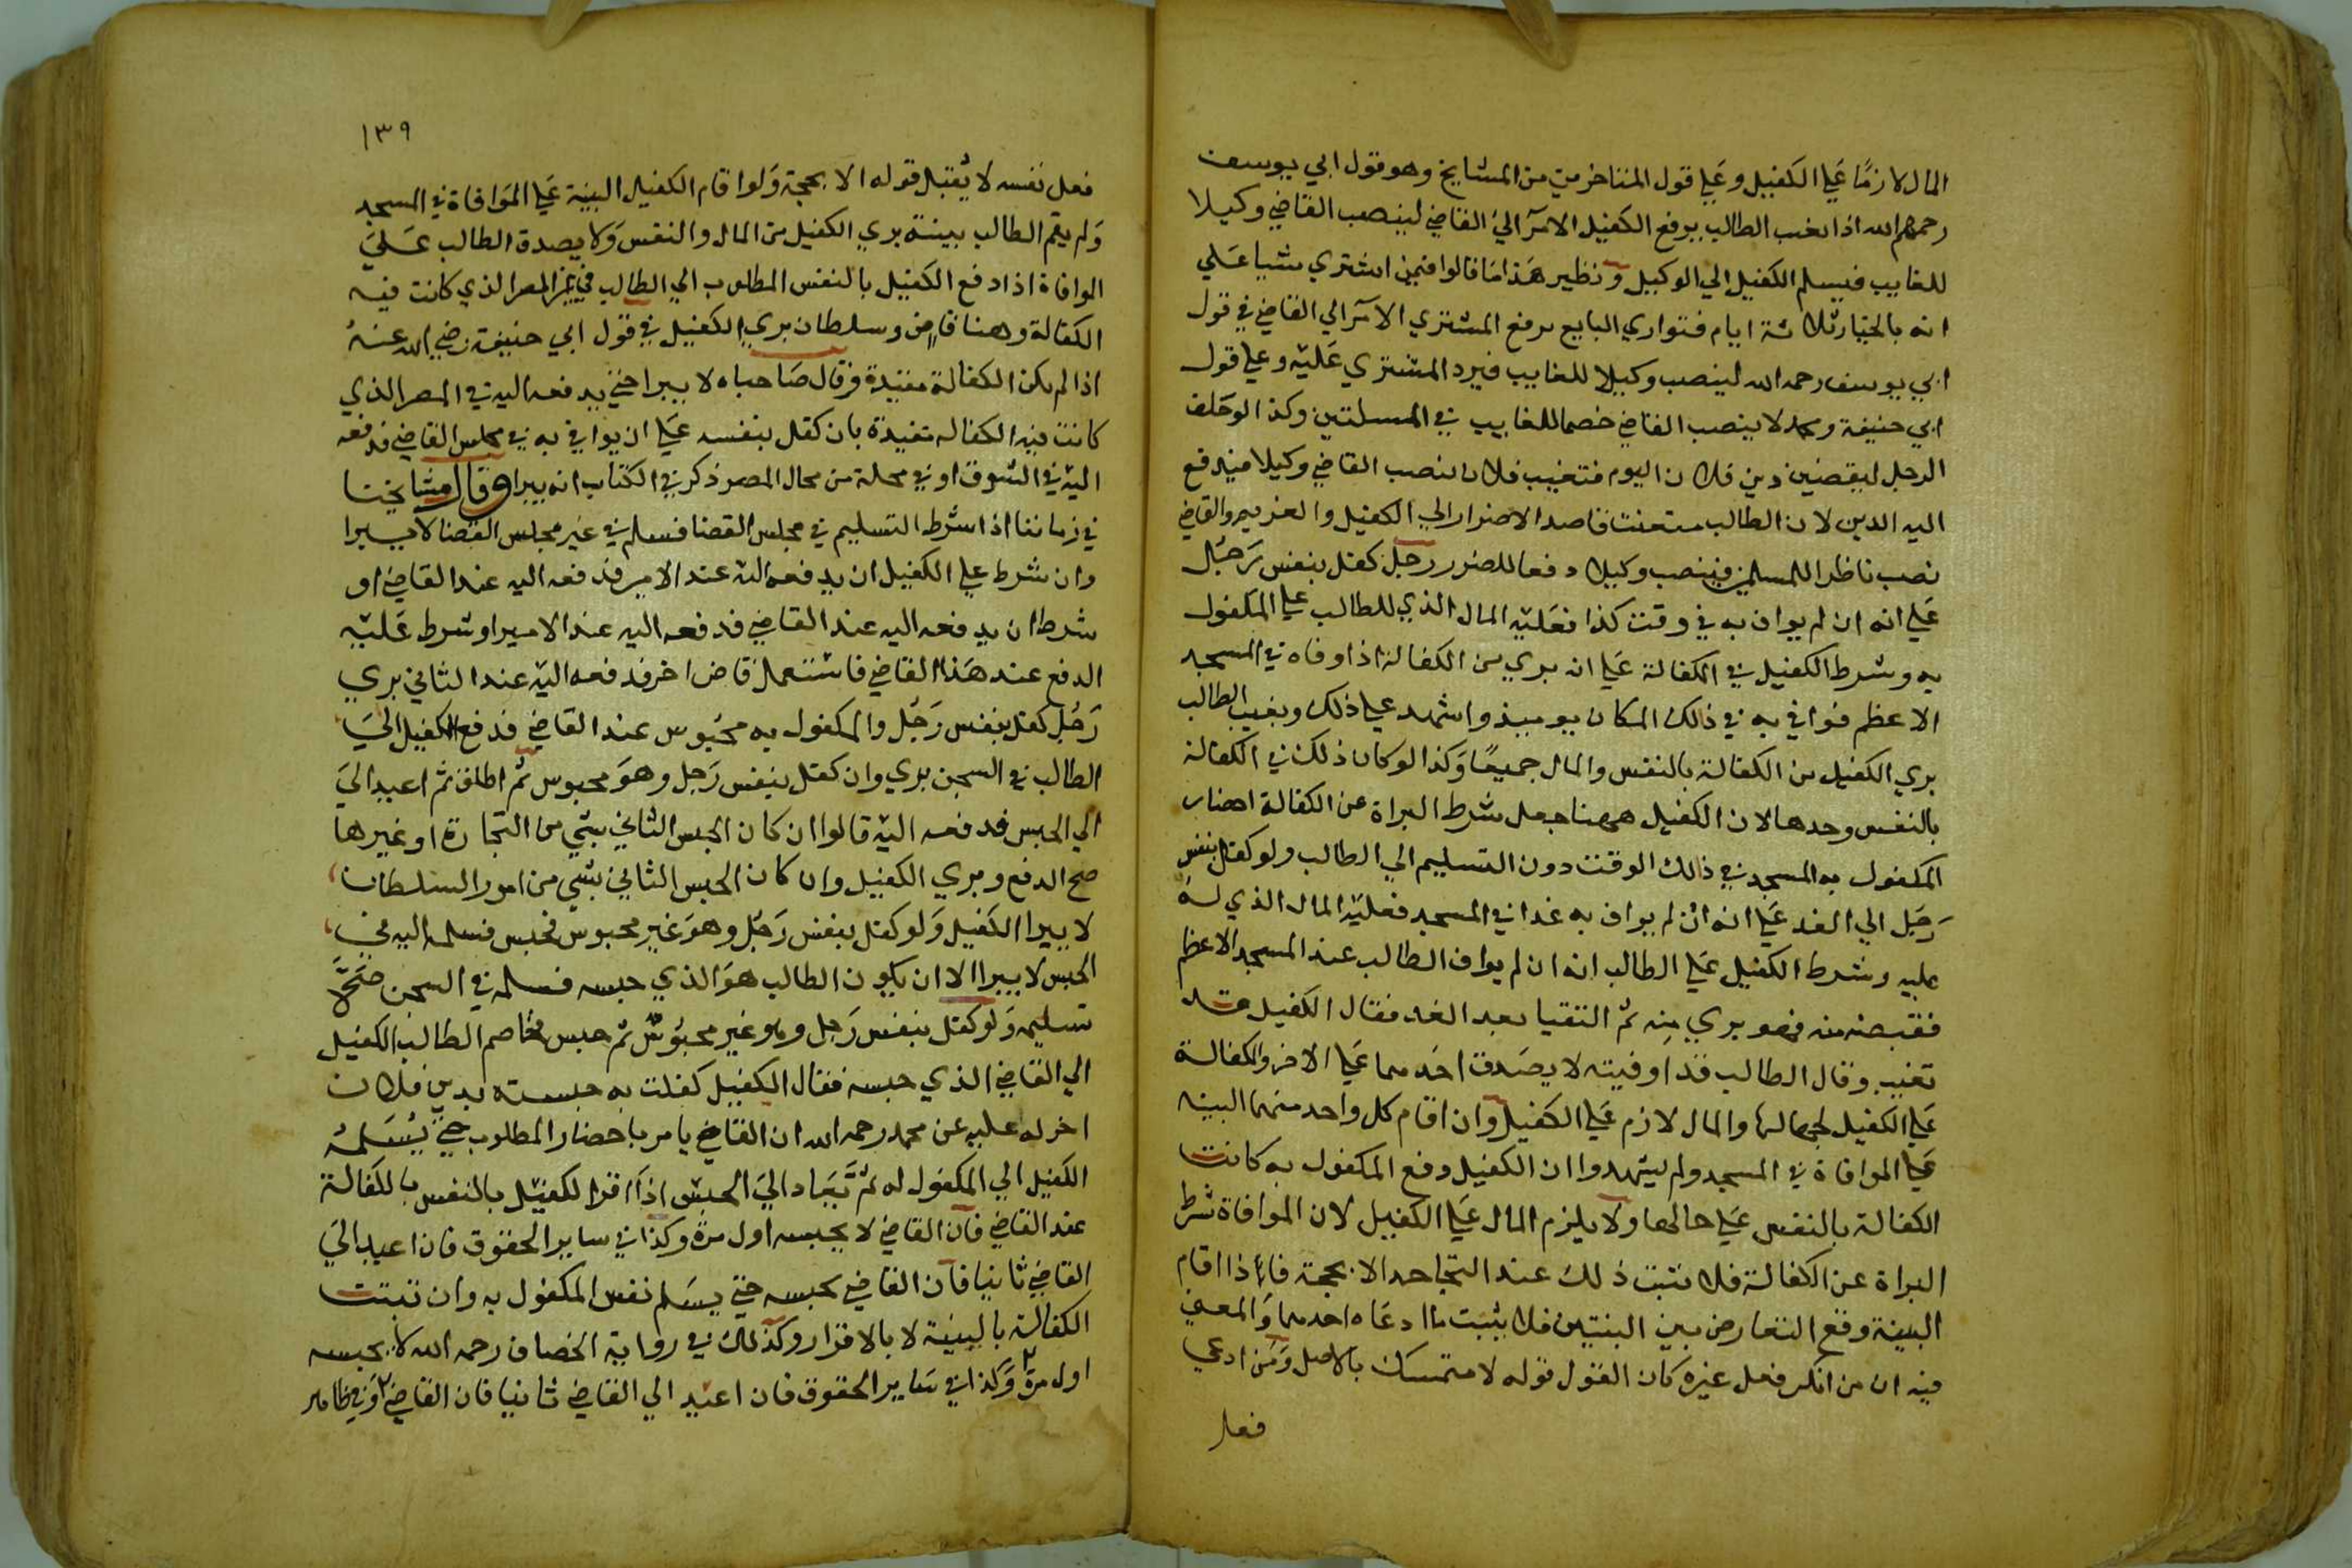 المال لازمًا علي الكفيل وعلي قول المتاخرين من المشايخ وهو قول ابي يوسف
رحمهم الله اذا تغيب الطالب يرفع الكفيل الامر الي القاضي لينصب القاضي وكيلا
للغايب فيسلم الكفيل الي الوكيل ونظير هذا ما قالوا فيمن اشتري شيا علي
انه بالخيار ثلاثة ايام فتواري البايع يرفع المشتري الامر الي القاضي في قول
ابي يوسف رحمه الله لينصب وكيلا للغايب فيرد المشتري عليه وعلي قول
ابي حنيفة ومحمد لا ينصب القاضي خصما للغايب في المسلتين وكذا لو حلف
الرجل ليقضين دين فلان اليوم فتغيب فلان نصب القاضي وكيلا فيدفع
اليه الدين لان الطالب متعنت قاصد الاضرار الي الكفيل والغريم والقاضي
نصب ناظرا للمسلمين فينصب وكيلا دفعا للضرر رجل كفل بنفس رجل
علي انه ان لم يواف به في وقت كذا فعليه المال الذي للطالب علي المكفول
به وشرط الكفيل في الكفالة علي ان بري من الكفالة اذا وفاه في المسجد
الاعظم فوافي به في ذلك المكان يوميذ واشهد علي ذلك وبغيب الطالب
بري الكفيل من الكفالة بالنفس والمال جميعًا وكذا لو كان ذلك في الكفالة
بالنفس وحدها لان الكفيل ههنا جعل شرط البراة عن الكفالة احضار
المكفول به المسجد في ذلك الوقت دون التسليم الي الطالب ولو كفل بنفس
رجل الي الغد علي انه ان لم يواف به غدا في المسجد فعليه المال الذي له
عليه وشرط الكفيل علي الطالب انه ان لم يواف الطالب عند المسجد الاعظم
فقبضه منه فهو بري منه ثم التقيا بعد الغد فقال الكفيل قد
تغيب وقال الطالب قد اوفيته لا يصدق احدهما علي الاخر والكفالة
علي الكفيل لحالها والمال لازم علي الكفيل وان اقام كل واحد منهما البينه
علي الموافاة في المسجد ولم يشهدوا ان الكفيل دفع المكفول به كانت
الكفالة بالنفس علي حالها ولا يلزم المال علي الكفيل لان الموافاة شرط
البراة عن الكفالة فلا يثبت ذلك عند التجاحد الا بحجة فاذا اقام
البينة وقع التعارض بين البنتين فلا يثبت ما ادعاه احدهما والمعني
فيه ان من انكر فعل غيره كان القول قوله لا متمسك بالاصل ومن ادعي
فعل
١٣٩
فعل نفسه لا يُقبل قوله الا بحجة ولو اقام الكفيل البينة علي الموافاة في المسجد
ولم يقم الطالب بينة بري الكفيل من المال والنفس ولا يصدق الطالب علي
الوافاة اذا دفع الكفيل بالنفس المطلوب الي الطالب في غير المصر الذي كانت فيه
الكفالة وهنا قاض وسلطان بري الكفيل في قول ابي حنيفة رضي الله عنه
اذا لم يكن الكفالة مقيدة وقال صاحباه لا يبرا حتي يدفعه اليه في المصر الذي
كانت فيه الكفاله مقيدة بان كفل بنفسه علي ان يوافي به في مجلس القاضي فدفعه
اليه في السوق او في محلة من محال المصر ذكر في الكتاب انه يبرا وقال مشايخنا
في زماننا اذا اشرط التسليم في مجلس القضا فسلم في غير مجلس القضا لا يبرا
وان شرط علي الكفيل ان يدفعه اليه عند الامير فدفعه اليه عند القاضي او
شرط ان يدفعه اليه عند القاضي فدفعه اليه عند الامير او شرط عليه
الدفع عند هذا القاضي فاستعمل قاض اخر فدفعه اليه عند الثاني بري
رجل كفل بنفس رجل والمكفول به محبوس عند القاضي فدفع الكفيل الي
الطالب في السجن بري وان كفل بنفس رجل وهو محبوس ثم اطلق ثم اعيد الي
الي الحبس فدفعه اليه قالوا ان كان الحبس الثاني بشي من التجارة او غيرها
صح الدفع وبري الكفيل وان كان الحبس الثاني بشي من امور السلطان
لا يبرا الكفيل ولو كفل بنفس رجل وهو غير محبوس فحبس فسلمه اليه في
الحبس لا يبرا الا ان يكون الطالب هو الذي حبسه فسلمه في السجن صح
تسليمه ولو كفل بنفس رجل وهو غير محبوس ثم حبس فخاصم الطالب الكفيل
الي القاضي الذي حبسه فقال الكفيل كفلت به حبسته بدين فلان
اخر له عليه عن محمد رحمه الله ان القاضي يامر باحضار المطلوب حتي يُسلمه
الكفيل الي المكفول له ثم يعاد الي الحبس اذا اقر الكفيل بالنفس بالكفالة
عند القاضي فان القاضي لا يحبسه اول مرة وكذا في ساير الحقوق فان اعيد الي
القاضي ثانيا فان القاضي يحبسه حتي يسلم نفس المكفول به وان ثبتت
الكفالة بالبينة لا بالاقرار وكذلك في رواية الخصاف رحمه الله لا يحبسه
اول مرة وكذا في ساير الحقوق فان اعيد الي القاضي ثانيا فان القاضي وفي ظاهر